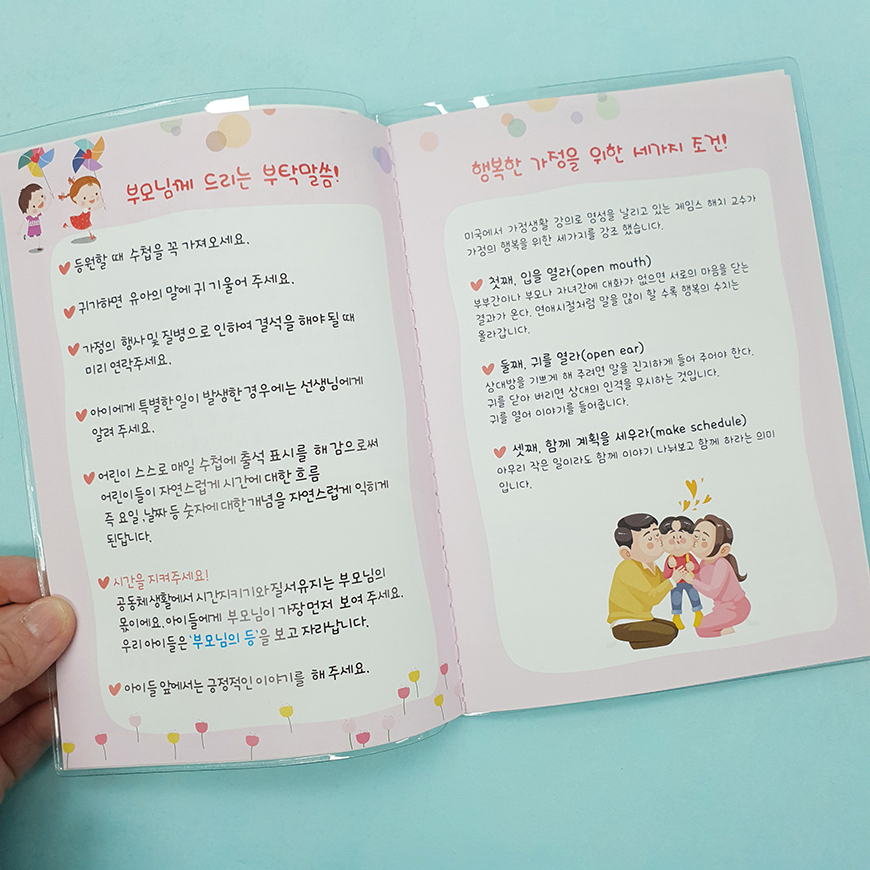 부모님께 드리는 부탁말씀!
등원할 때 수첩을 꼭 가져오세요.
귀가하면 유아의 말에 귀 기울어 주세요.
가정의 행사및 질병으로 인하여 결석을 해야 될 때
미리 연락주세요.
아이에게 특별한 일이 발생한 경우에는 선생님에게
알려 주세요.
어린이 스스로 매일 수첩에 출석 표시를 해 감으로써
어린이들이 자연스럽게 시간에 대한 흐름
즉 요일 ,날짜 등 숫자에 대한 개념을 자연스럽게 익히게
된답니다.
시간을 지켜주세요!
공동체 생활에서 시간지키기와 질서유지는 부모님의
몫이에요. 아이들에게 부모님이 가장 먼저 보여 주세요.
우리 아이들은 '부모님의 등'을 보고 자라납니다.
아이들 앞에서는 긍정적인 이야기를 해 주세요.
행복한 가정을 위한 세가지 조건!
미국에서 가정생활 강의로 명성을 날리고 있는 제임스 해치 교수가
가정의 행복을 위한 세가지를 강조 했습니다.
첫째, 입을 열라(open mouth)
부부간이나 부모나 자녀간에 대화가 없으면 서로의 마음을 닫는
결과가 온다. 연애시절처럼 말을 많이 할 수록 행복의 수치는
올라갑니다.
둘째, 귀를 열라(open ear)
상대방을 기쁘게 해 주려면 말을 진지하게 들어 주어야 한다.
귀를 닫아 버리면 상대의 인격을 무시하는 것입니다.
귀를 열어 이야기를 들어줍니다.
셋째, 함께 계획을 세우라(make schedule)
아무리 작은 일이라도 함께 이야기 나눠보고 함께 하라는 의미
입니다.